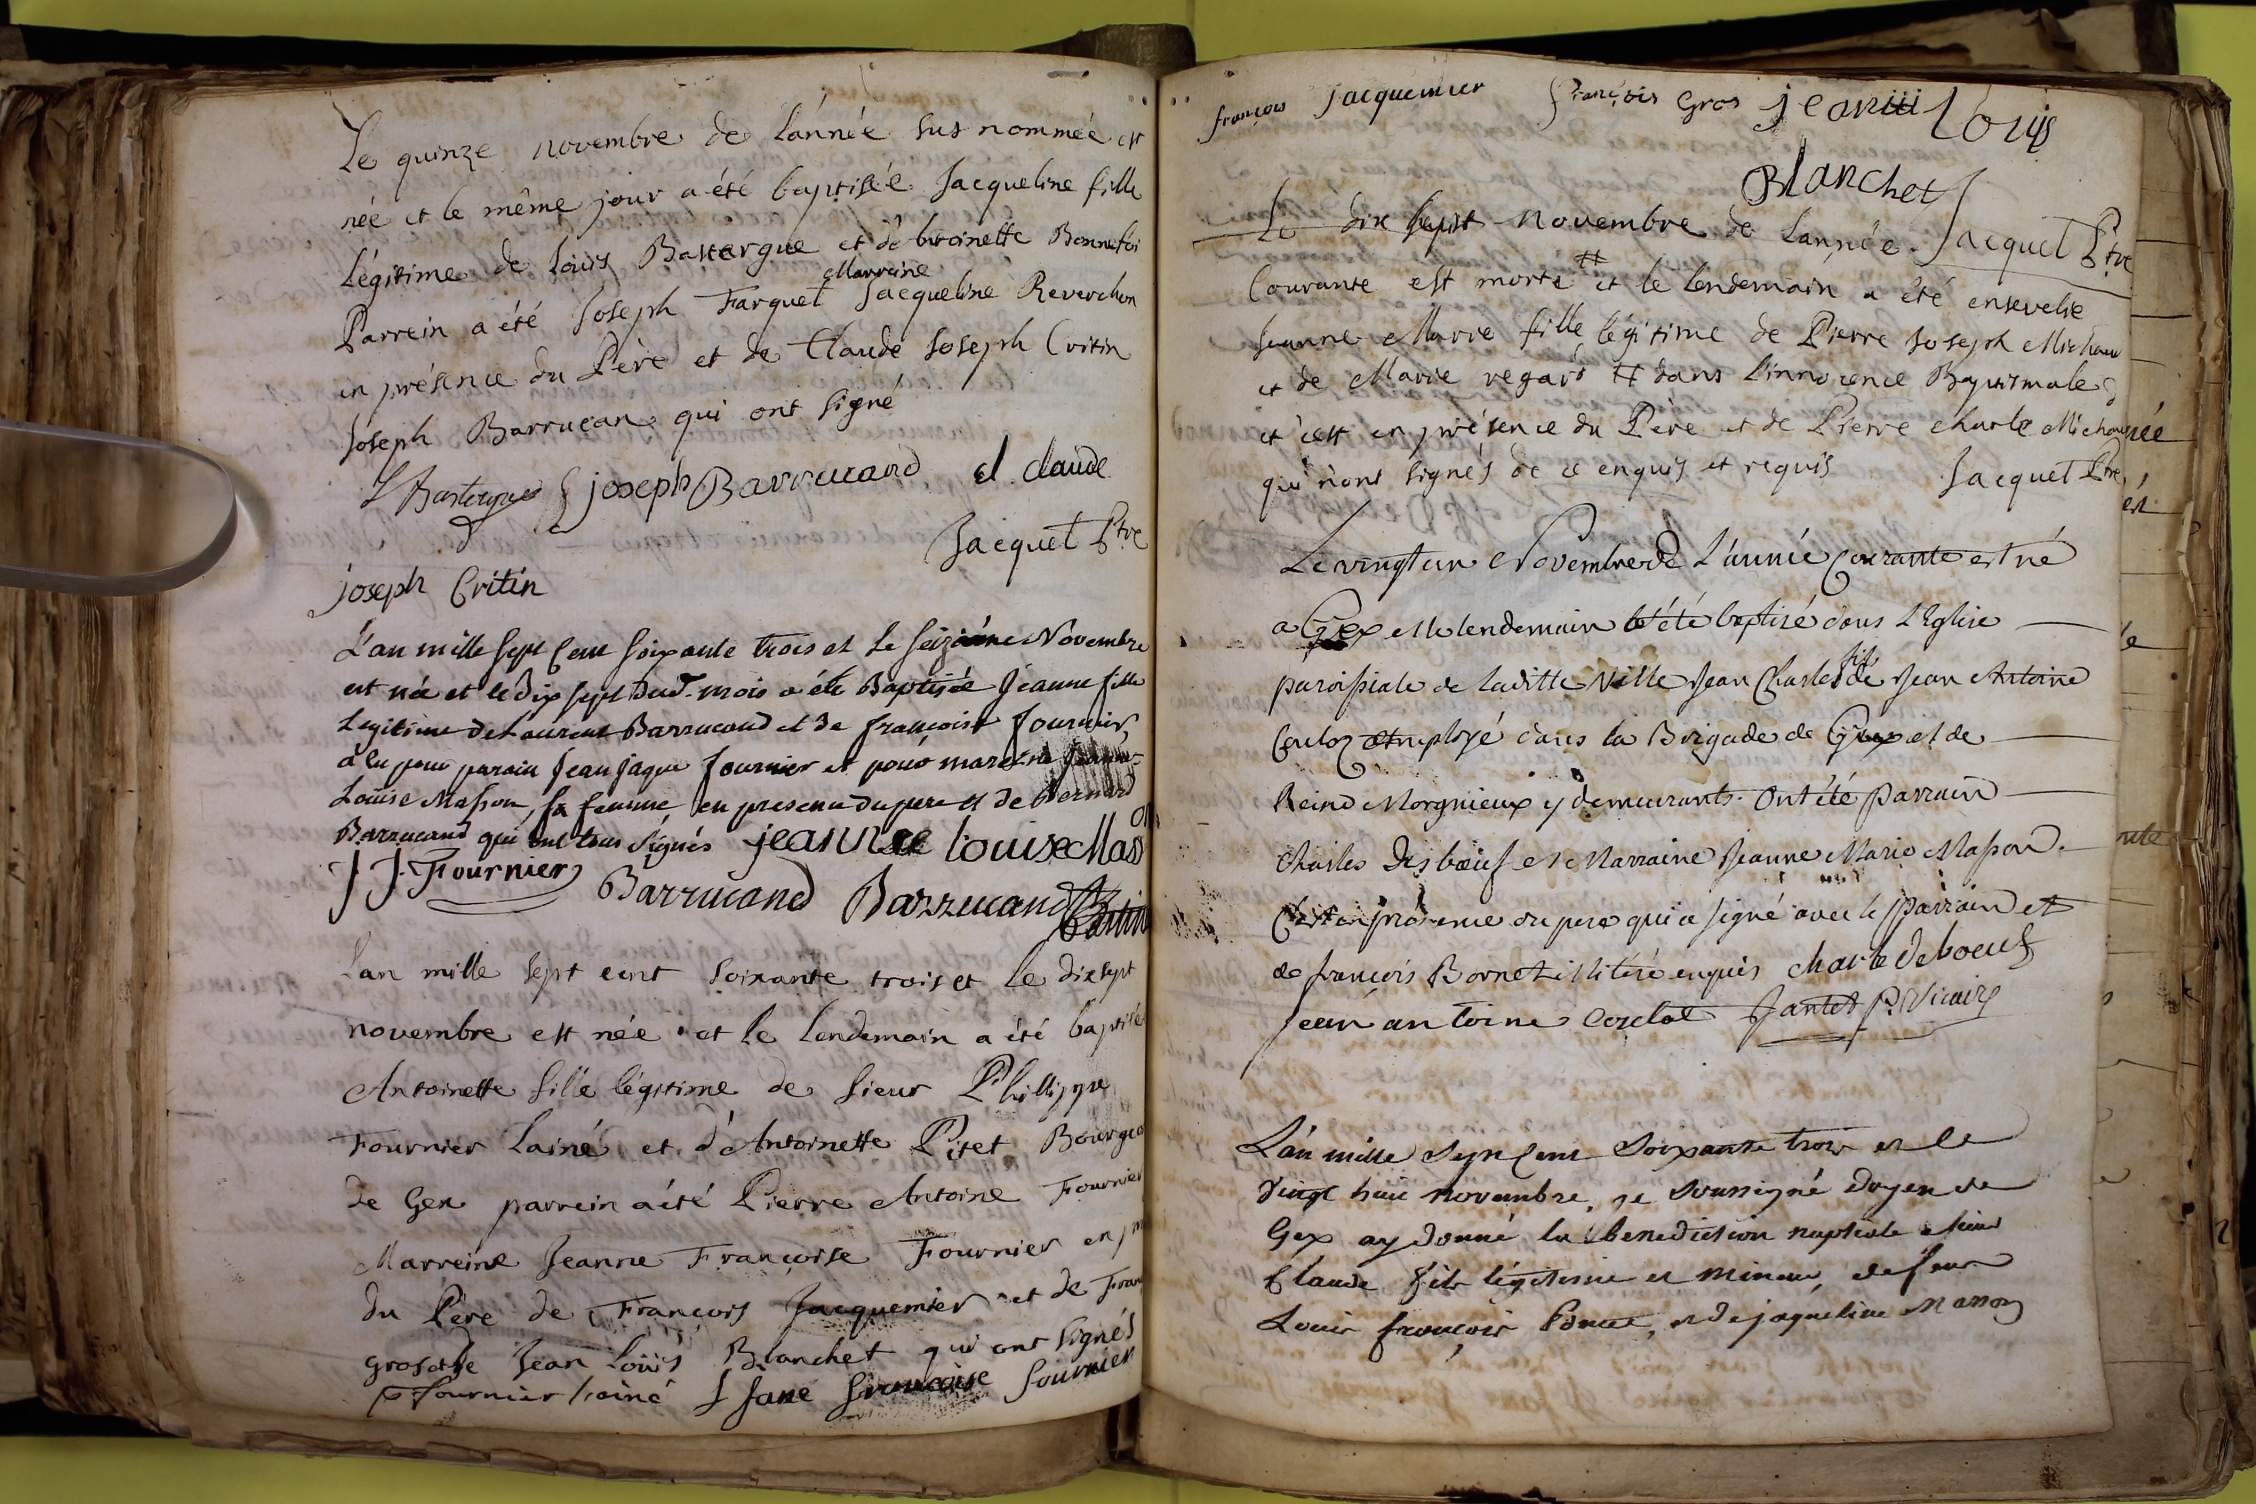 Le quinze novembre de l'année susnommée est
née et le même jour a été baptisée Jacqueline fille
légitime de Loüis Bastergue et d'Antoinette Bonnefoi
Marreine
Parrein a été Joseph Farquet Jacqueline Reverchon
en présence du Père et de Claude Joseph Critin
Joseph Barrucan qui ont signé
L Bastergue joseph Barrucand d. claude
Jacquet Ptre
joseph Critin
L'an mille sept cent soixante trois et le seizième Novembre
est née et le dix sept dud. mois a été Baptisée Jeanne fille
Legitime de Laurent Barrucand et de françoise fournier,
a eu pour parain Jean jaque fournier et pour maraine Jeanne
Loüise Masson, sa femme, en presence du pere et de Bernard
Barrucand qui ont tous signés jeanne louise Mass
on
J J. Fournier Barrucand Barrucand
L'an mille sept cent soixante trois et le dix sept
novembre est née et le lendemain a été baptisée
Antoinette fille légitime de sieur Phillippe
Fournier l'ainé et d'Antoinette Pitet Bourgeo
de Gex parrein a été Pierre Antoine Fournier
Marreine Jeanne Françoise Fournier en p
du Père de François Jacquemier et de Fran
gros et de Jean Loüis Blanchet qui ont signés
p fournier l'ainé Jane françoise fournier
françois jacquemier françois Gros jean Louis
Blanchet
Jacquet Ptre
Le dix sept novembre de l'année
Courante est morte # et le lendemain a été ensevelie
Jeanne Marie fille légitime de Pierre Joseph Michau
et de Marie regard # dans l'innocence Baptismale
et c'est en présence du Père et de Pierre charle Michau
qui n'ont signés de ce enquis et requis Jacquet Ptre
Le vingt un Novembre de L'année Courante est né
a Gex et le lendemain a été baptisé dans L'Eglise
fils
paroissiale de laditte Ville Jean Charles de Jean Antoine
employé dans la Brigade de Gex et de
Reine Morgnieux y demeurants. Ont été parrain
Charles Desbœuf et Marraine Jeanne Marie Masson.
C'est en présence du pere qui a signé avec le parrain et
de françois Bornet illiteré enquis charle deboeuf
jean antoine Jantet P. Vicaire
L'an mille sept cent soixante trois et le
vingt huit novembre, je soussigné doyen de
Gex ay donné la benediction nuptiale a sieur
Claude fils légitime et mineur, de feu
Louis françois Poncet, et de jaqueline Masson